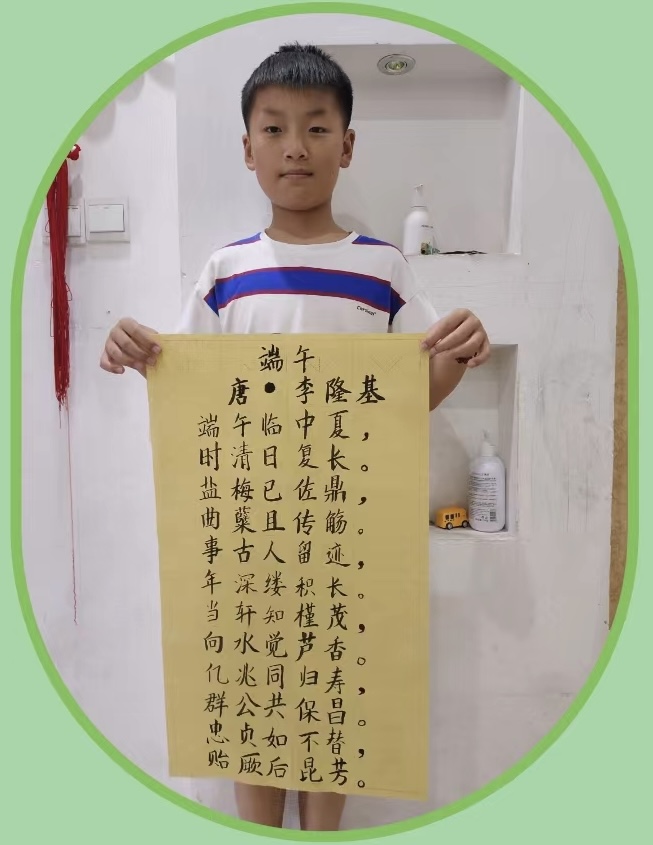 端午
唐●李隆基
端午临中夏，
时清日复长。
盐梅已佐鼎，
曲蘖且传觞。
事古人留迹，
年深缕积长。
当轩知槿茂，
向水觉芦香。
亿兆同归寿，
群公共保昌。
忠贞如不替，
贻厥后昆芳。